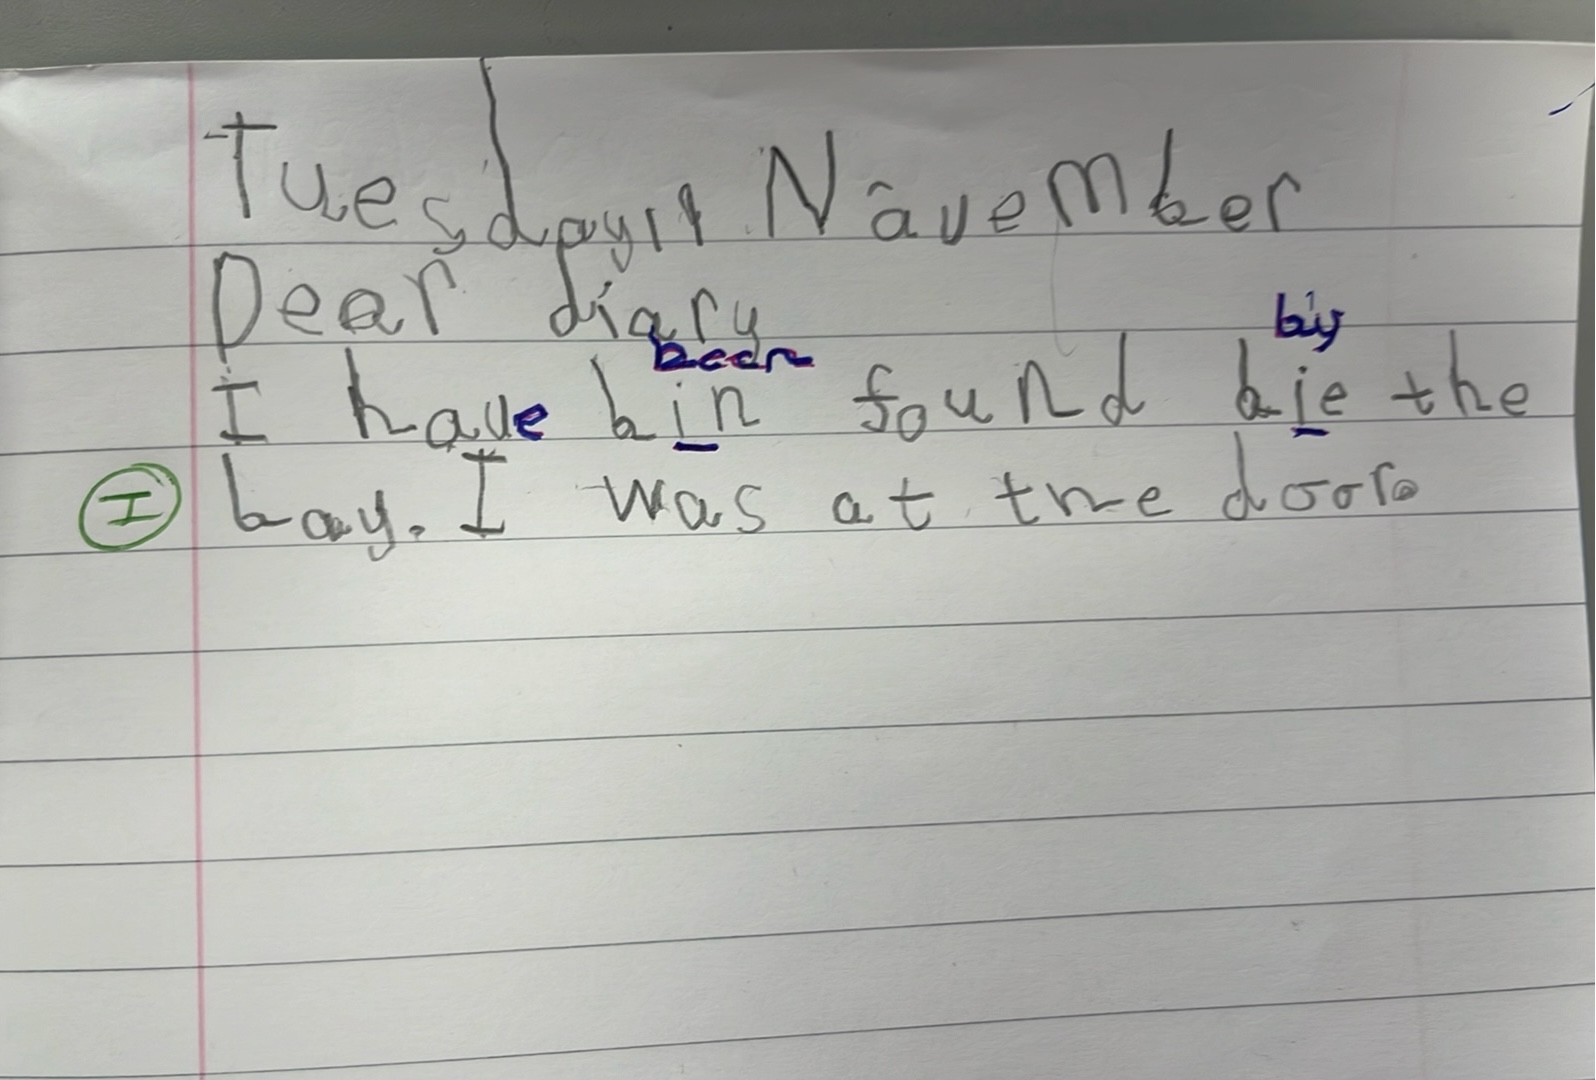 Tuesday 11 Navember
Dear diary
been by
I have bin found bie the
I bay. I was at the door.